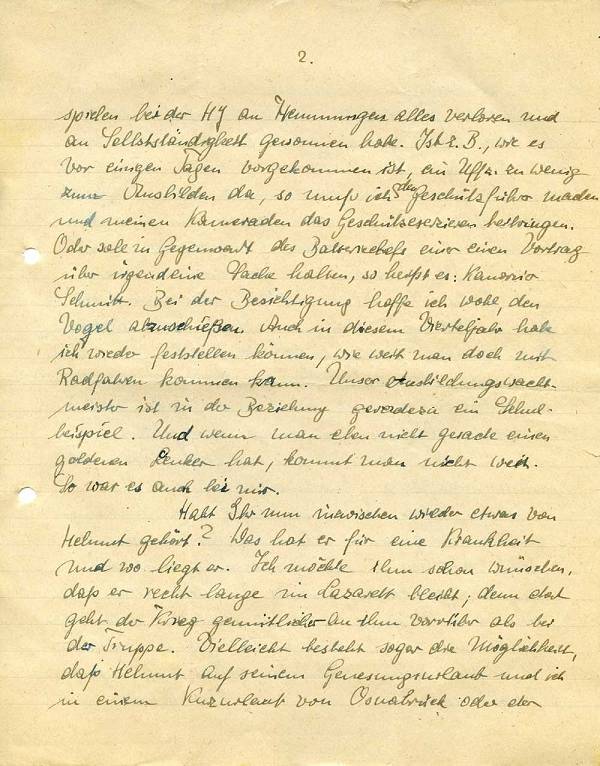 2.
spielen bei der HJ an Hemmungen alles verloren und
an Selbstständigkeit gewonnen habe. Ist z. B., wie es
vor einigen Tagen vorgekommen ist, ein Uffz. zu wenig
zum Ausbilden da, so muß ich den Geschützführer machen
und meinen Kameraden das Geschützexerzieren beibringen.
Oder soll in Gegenwart des Batteriechefs einer einen Vortrag
über irgendeine Sache halten, so heißt es: Kanonier
Schmitt. Bei der Besichtigung hoffe ich wohl, den
Vogel abzuschießen. Auch in diesem Vierteljahr habe
ich wieder feststellen können, wie weit man doch mit
Radfahren kommen kann. Unser Ausbildungswacht-
meister ist in der Beziehung geradezu ein Schul-
beispiel. Und wenn man eben nicht gerade einen
goldenen Lenker hat, kommt man nicht weit.
So war es auch bei mir.
Habt Ihr nun inzwischen wieder etwas von
Helmut gehört? Was hat er für eine Krankheit
und wo liegt er. Ich möchte ihm schon wünschen,
daß er recht lange im Lazarett bleibt; denn dort
geht der Krieg gemütlicher an ihm vorrüber als bei
der Truppe. Vielleicht besteht sogar die Möglichkeit,
daß Helmut auf seinem Genesungsurlaub und ich
in einem Kurzurlaub von Osnabrück oder der